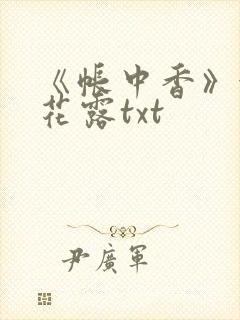 《帐中香》
花露txt
尹廣軍